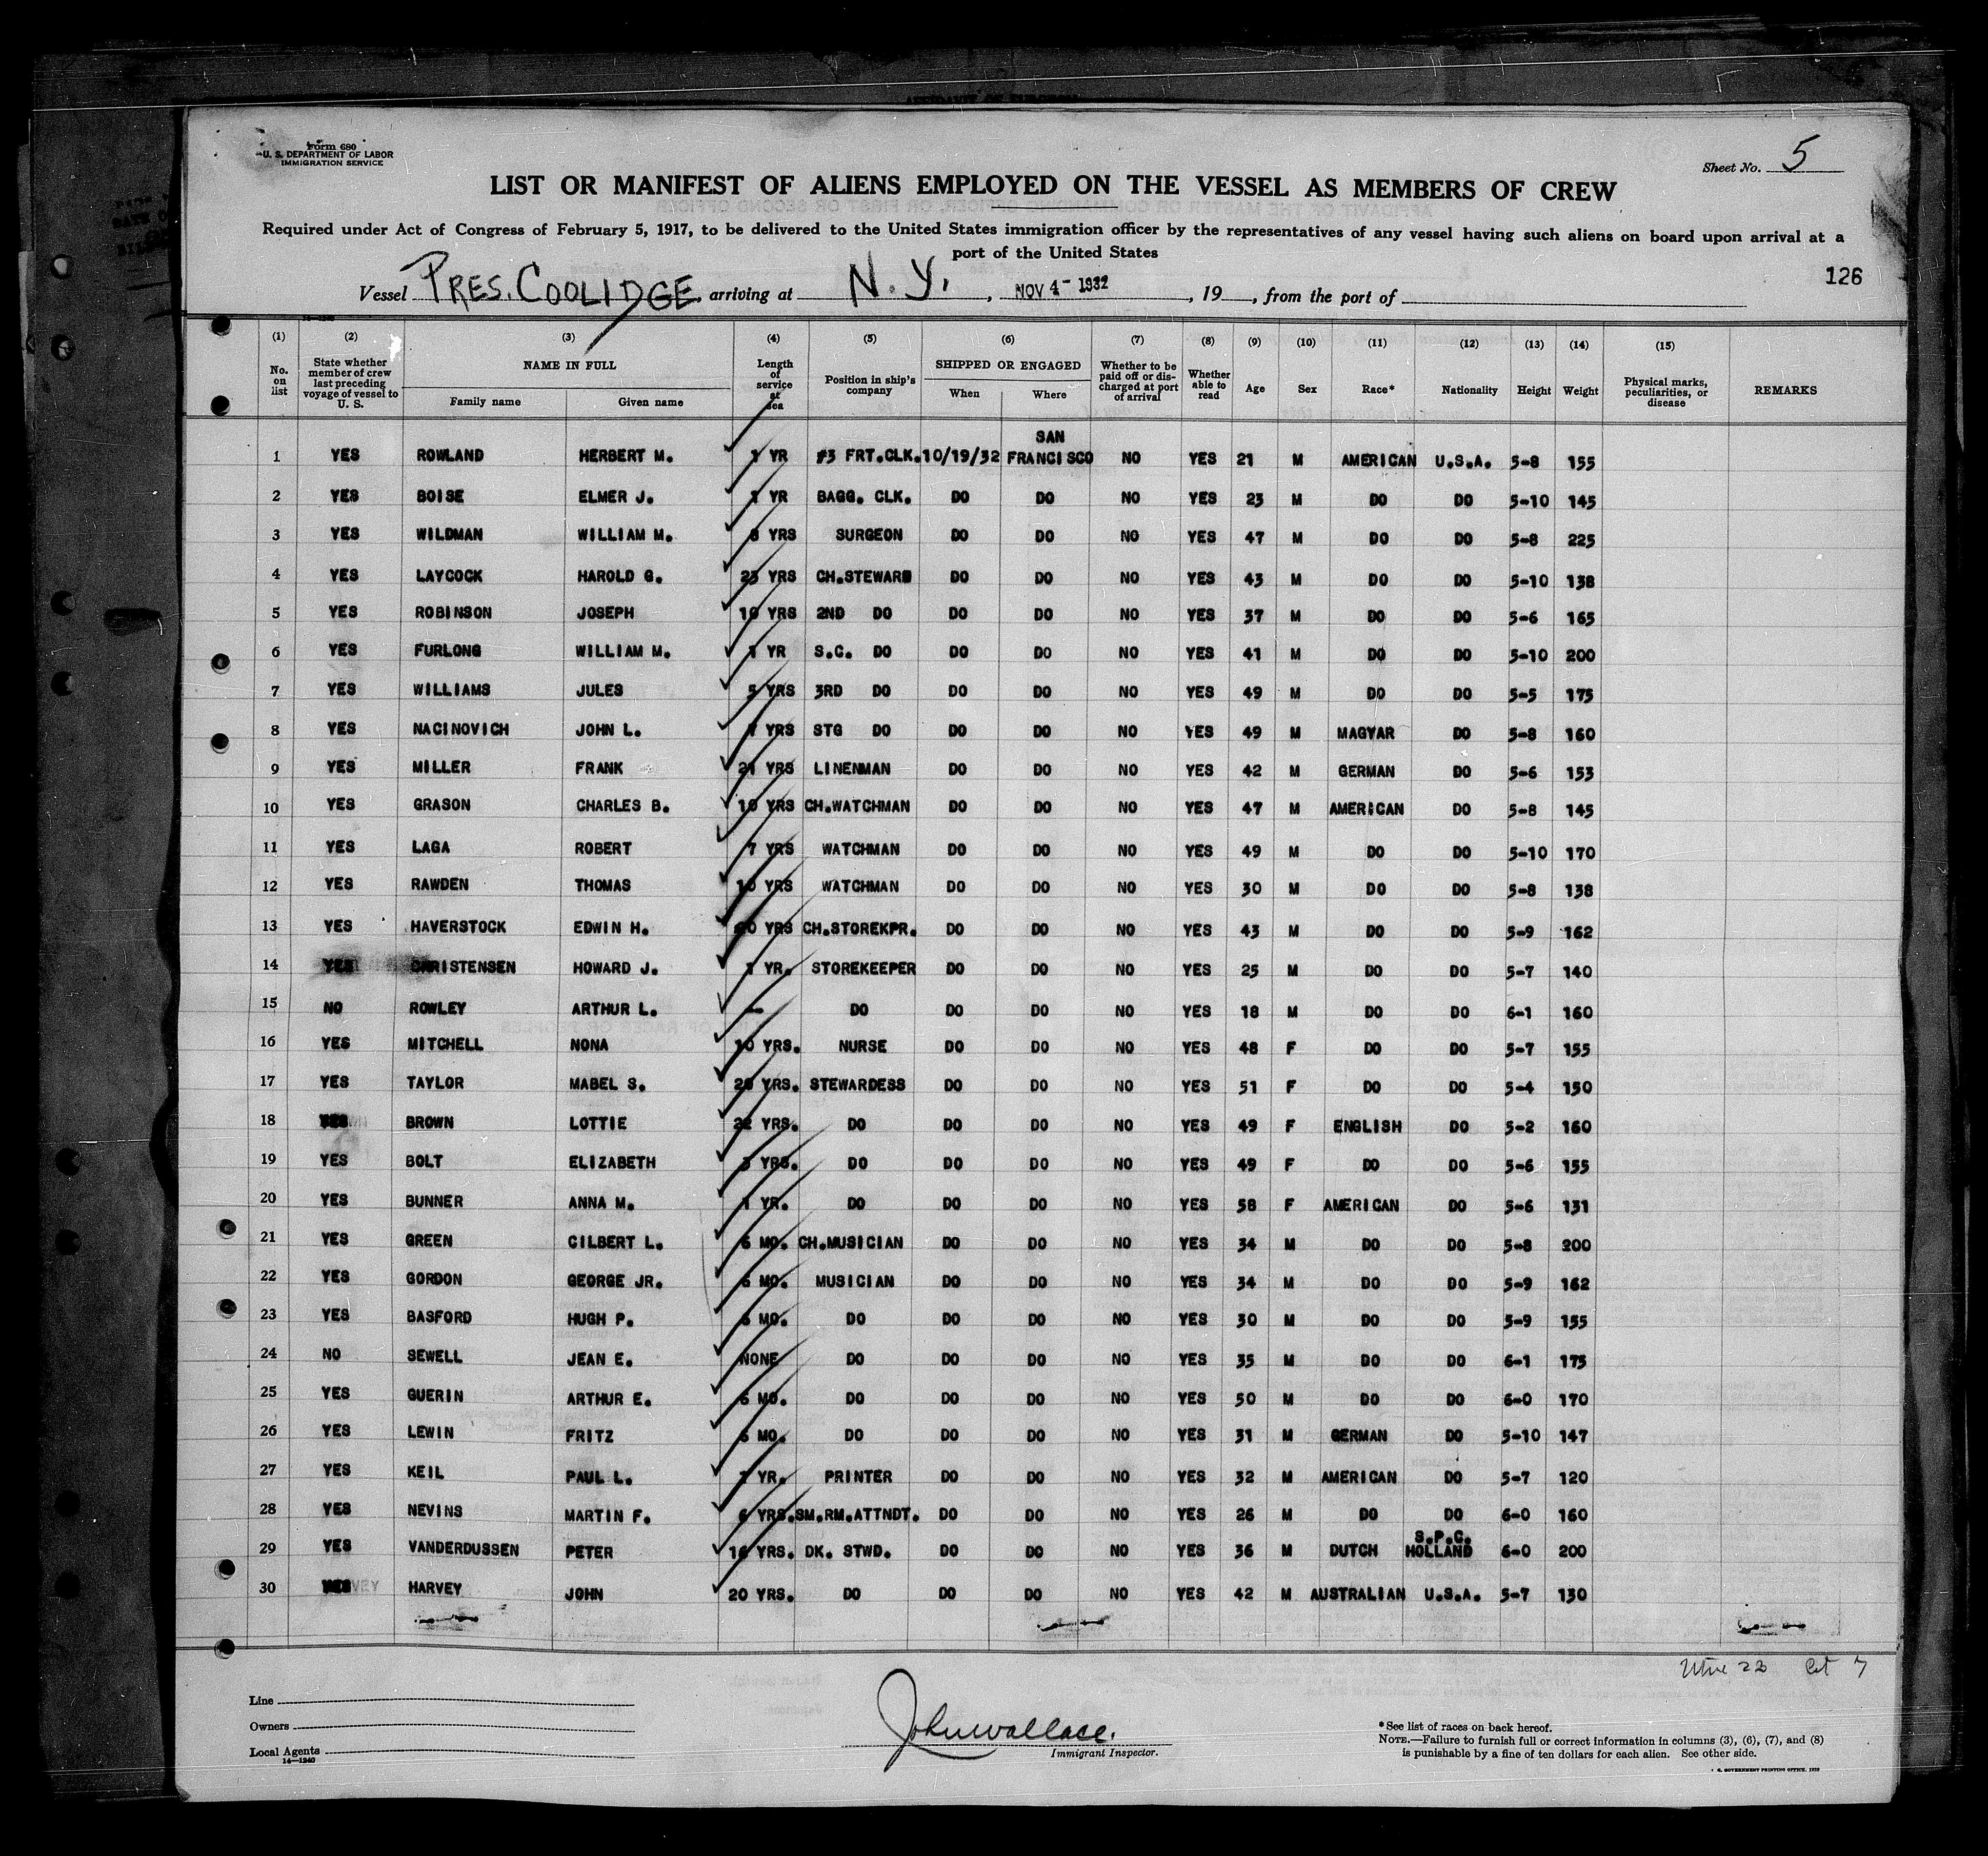 Form 680
U. S. DEPARTMENT OF LABOR
IMMIGRATION SERVICE
Sheet No. 5
LIST OR MANIFEST OF ALIENS EMPLOYED ON THE VESSEL AS MEMBERS OF CREW
Required under Act of Congress of February 5, 1917, to be delivered to the United States immigration officer by the representatives of any vessel having such aliens on board upon arrival at a
port of the United States
126
Vessel PRES. COOLIDGE, arriving at N. Y., NOV 4- 1932, 19 , from the port of
(1) (2) (3) (4) (5) (6) (7) (8) (9) (10) (11) (12) (13) (14) (15)
No. on list State whether member of crew last preceding voyage of vessel to U. S. NAME IN FULL Family name Given name Length of service at sea Position in ship's company SHIPPED OR ENGAGED When Where Whether to be paid off or discharged at port of arrival Whether able to read Age Sex Race* Nationality Height Weight Physical marks, peculiarities, or disease REMARKS
1 YES ROWLAND HERBERT M. 1 YR #3 FRT.CLK. 10/19/32 SAN FRANCISCO NO YES 21 M AMERICAN U.S.A. 5-8 155
2 YES BOISE ELMER J. 1 YR BAGG. CLK. DO DO NO YES 23 M DO DO 5-10 145
3 YES WILDMAN WILLIAM M. YRS SURGEON DO DO NO YES 47 M DO DO 5-8 225
4 YES LAYCOCK HAROLD G. 23 YRS CH.STEWARD DO DO NO YES 43 M DO DO 5-10 138
5 YES ROBINSON JOSEPH 10 YRS 2ND DO DO DO NO YES 37 M DO DO 5-6 165
6 YES FURLONG WILLIAM M. 1 YR S.C. DO DO DO NO YES 41 M DO DO 5-10 200
7 YES WILLIAMS JULES 5 YRS 3RD DO DO DO NO YES 49 M DO DO 5-5 175
8 YES NACINOVICH JOHN L. YRS STG DO DO DO NO YES 49 M MAGYAR DO 5-8 160
9 YES MILLER FRANK 21 YRS LINENMAN DO DO NO YES 42 M GERMAN DO 5-6 153
10 YES GRASON CHARLES B. 10 YRS CH.WATCHMAN DO DO NO YES 47 M AMERICAN DO 5-8 145
11 YES LAGA ROBERT 7 YRS WATCHMAN DO DO NO YES 49 M DO DO 5-10 170
12 YES RAWDEN THOMAS 10 YRS WATCHMAN DO DO NO YES 30 M DO DO 5-8 138
13 YES HAVERSTOCK EDWIN H. YRS CH.STOREKPR. DO DO NO YES 43 M DO DO 5-9 162
14 YES CHRISTENSEN HOWARD J. 1 YR. STOREKEEPER DO DO NO YES 25 M DO DO 5-7 140
15 NO ROWLEY ARTHUR L. — DO DO DO NO YES 18 M DO DO 6-1 160
16 YES MITCHELL NONA 10 YRS. NURSE DO DO NO YES 48 F DO DO 5-7 155
17 YES TAYLOR MABEL S. 20 YRS. STEWARDESS DO DO NO YES 51 F DO DO 5-4 150
18 YES BROWN LOTTIE 22 YRS. DO DO DO NO YES 49 F ENGLISH DO 5-2 160
19 YES BOLT ELIZABETH YRS. DO DO DO NO YES 49 F DO DO 5-6 155
20 YES BUNNER ANNA M. 1 YR. DO DO DO NO YES 58 F AMERICAN DO 5-6 131
21 YES GREEN GILBERT L. 6 MO. CH.MUSICIAN DO DO NO YES 34 M DO DO 5-8 200
22 YES GORDON GEORGE JR. 6 MO. MUSICIAN DO DO NO YES 34 M DO DO 5-9 162
23 YES BASFORD HUGH P. 6 MO. DO DO DO NO YES 30 M DO DO 5-9 155
24 NO SEWELL JEAN E. NONE DO DO DO NO YES 35 M DO DO 6-1 175
25 YES GUERIN ARTHUR E. 6 MO. DO DO DO NO YES 50 M DO DO 6-0 170
26 YES LEWIN FRITZ 6 MO. DO DO DO NO YES 31 M GERMAN DO 5-10 147
27 YES KEIL PAUL L. 1 YR. PRINTER DO DO NO YES 32 M AMERICAN DO 5-7 120
28 YES NEVINS MARTIN F. 6 YRS. SM.RM.ATTNDT. DO DO NO YES 26 M DO DO 6-0 160
29 YES VANDERDUSSEN PETER 16 YRS. DK. STWD. DO DO NO YES 36 M DUTCH S.P.C. HOLLAND 6-0 200
30 YES HARVEY JOHN 20 YRS. DO DO DO NO YES 42 M AUSTRALIAN U.S.A. 5-7 130
Line
Owners
Local Agents
14—1240
John Wallace.
Immigrant Inspector.
* See list of races on back hereof.
NOTE.—Failure to furnish full or correct information in columns (3), (6), (7), and (8)
is punishable by a fine of ten dollars for each alien. See other side.